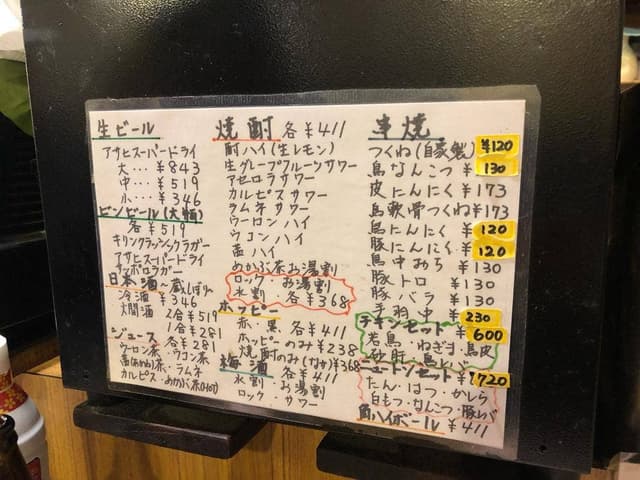 生ビール
アサヒスーパードライ
大…¥843
中…¥519
小…¥346
ビンビール(大瓶)
各¥519
キリンクラッシックラガー
アサヒスーパードライ
サッポロラガー
日本酒〜蔵しぼり〜
冷酒 ¥346
大関酒 2合¥519
1合¥281
ジュース 各¥281
ウーロン茶・ウコン茶
・ラムネ
カルピス・めかぶ茶(HOT)
焼酎 各¥411
酎ハイ(生レモン)
生グレープフルーツサワー
アセロラサワー
カルピスサワー
ラムネサワー
ウーロンハイ
ウコンハイ
めかぶ茶お湯割
ロック・お湯割
水割 各¥368
ホッピー
赤・黒 各¥411
ホッピーのみ¥238
焼酎のみ(なか)¥368
梅酒 各¥411
水割・お湯割
ロック・サワー
串焼
つくね(自家製) ¥120
鳥なんこつ ¥130
皮にんにく ¥173
鳥軟骨つくね ¥173
鳥にんにく ¥120
豚にんにく ¥120
鳥中おち ¥130
豚トロ ¥130
豚バラ ¥130
手羽中 ¥230
チキンセット ¥600
若鳥・ねぎま・鳥皮
砂肝・鳥レバ
ニュートンセット ¥720
たん・はつ・かしら
白もつ・なんこつ・豚レバ
角ハイボール ¥411